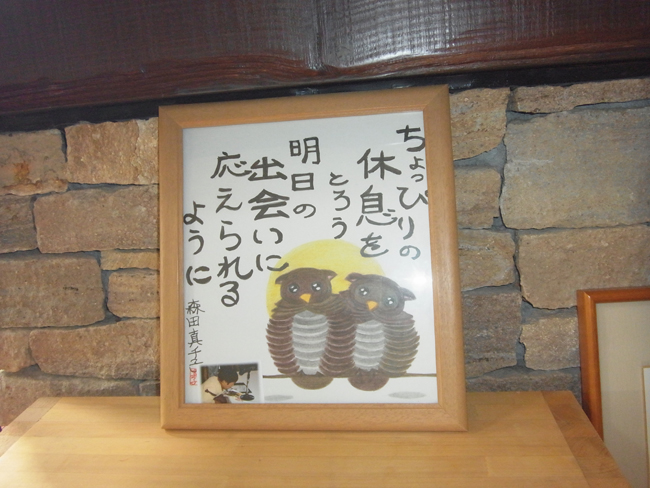 ちょっぴりの
休息を
とろう
明日の
出会いに
応えられる
ように
森田真千子